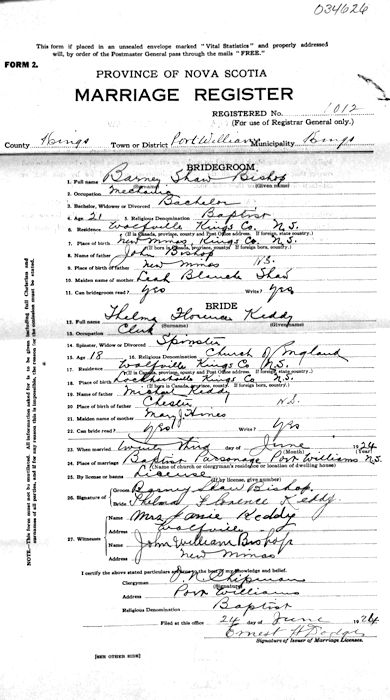 034626
This form if placed in an unsealed envelope marked "Vital Statistics" and properly addressed
will, by order of the Postmaster General pass through the mails "FREE."
FORM 2.
PROVINCE OF NOVA SCOTIA
MARRIAGE REGISTER
REGISTERED No. 1012
(For use of Registrar General only.)
County Kings Town or District Port Williams Municipality Kings
BRIDEGROOM
1. Full name Barney Shaw Bishop
(Given name)
2. Occupation Mechanic
3. Bachelor, Widower or Divorced Bachelor
4. Age 21 5. Religious Denomination Baptist
6. Residence Wolfville Kings Co N.S.
(If in Canada, province, county and Post Office address. If foreign, state country.)
7. Place of birth New Minas, Kings Co N.S.
(If born in Canada, province, county. If foreign born, country.)
8. Name of father John Bishop
9. Place of birth of father New Minas N.S.
10. Maiden name of mother Leah Blanche Shaw
11. Can bridegroom read? yes Write? yes
BRIDE
12. Full name Thelma Florence Keddy
(Surname) (Given name)
13. Occupation Clerk
14. Spinster, Widow or Divorced Spinster
15. Age 18 16. Religious Denomination Church of England
17. Residence Wolfville Kings Co N.S.
(If in Canada, province, county and Post Office address. If foreign, state country.)
18. Place of birth Lockhartville Kings Co N.S.
(If born in Canada, province, county. If foreign born, country.)
19. Name of father Michael Keddy
20. Place of birth of father Chester N.S.
21. Maiden name of mother Mary J Hines
22. Can bride read? yes Write? yes
23. When married twenty third day of June 1924
(Month) (Year)
24. Place of marriage Baptist Parsonage Port Williams N.S.
(Name of church or clergyman's residence or location of dwelling house)
25. By license or banns License
(If by license, give number)
26. Signature of Groom Barney Shaw Bishop
Bride Thelma Florence Keddy
27. Witnesses
Name Mrs Janie Keddy
Address Wolfville
Name John William Bishop
Address New Minas
I certify the above stated particulars are true to the best of my knowledge and belief.
Clergyman Shipman
(Signature)
Address Port Williams
Religious Denomination Baptist
Filed at this office 24 day of June 1924
Ernest H
Signature of Issuer of Marriage Licenses.
[SEE OTHER SIDE]
NOTE.—This form must not be mutilated. All information asked for is to be given including full Christian and
surnames of all parties, and if for any reason this is impossible, the reason for the omission must be stated.